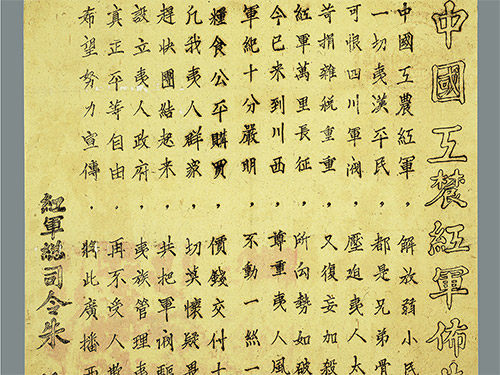 中國工農紅軍佈
中國工農紅軍，解放弱小民
一切夷漢平民，都是兄弟骨
可恨四川軍閥，壓迫夷人太
苛捐雜稅重重，又復妄加殺
紅軍萬里長征，所向勢如破
今已來到川西，尊重夷人風
軍紀十分嚴明，不動一絲一
糧食公平購買，價錢交付十
凡我夷人群眾，切莫懷疑
趕快團結起來，共把軍閥驅
設立夷人政府，夷族管理夷
真正平等自由，再不受人欺
希望努力宣傳，將此廣播西
紅軍總司令朱